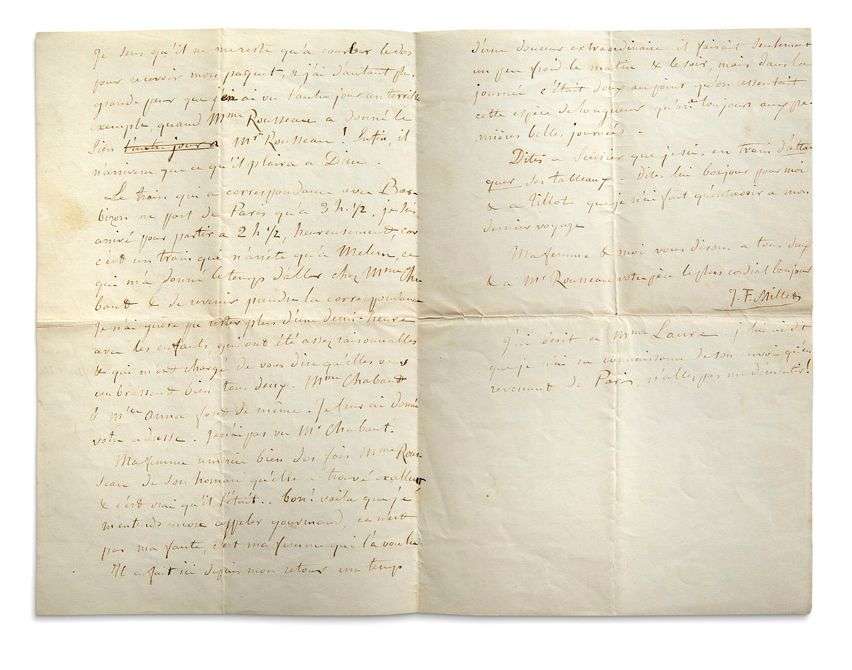 Je sens qu'il ne me reste qu'à courber le dos
pour recevoir mon paquet, & j'ai d'autant plus
grande peur que j'en ai vu l'autre jour un terrible
exemple quand Mme Rousseau a donné le
sien l'autre jour a Mr Rousseau! Enfin, il
n'arrivera que ce qu'il plaira a Dieu.
Le train qui a correspondance avec Bar-
bizon ne part de Paris qu'à 3 h 1/2, je suis
arrivé pour partir a 2 h 1/2, heureusement, car
c'est un train qui n'arrête qu'à Melun, ce
qui m'a donné le temps d'aller chez Mme Cha
baud & de revenir prendre la correspondance
Je n'ai guère pu rester plus d'une demi-heure
avec les enfants qui ont été assez raisonnables
& qui m'ont chargé de vous dire qu'elles vous
embrassent bien tous deux. Mme Chabaud
& Mlle Anna font de même. Je leur ai donné
votre adresse. Je n'ai pas vu Mr Chabaud.
Ma femme remercie bien des fois Mme Rous
seau de son homard qu'elle a trouvé excellent
& c'est vrai qu'il l'était.. bon! voilà que je
m'entends encore appeler gourmand, ce n'est
pas ma faute, c'est ma femme qui l'a voulu
Il a fait ici depuis mon retour un temps
d'une douceur extraordinaire il faisait seulement
un peu froid le matin & le soir, mais dans la
journée c'était doux au point qu'on ressentait
cette espèce de langueur qu'on a toujours aux pre
mières belles journées.
Dites a Sensier que je suis en train d'atta
quer ses tableaux. Dites lui bonjour pour moi
& a Tillot que je n'ai fait qu'entrevoir a mon
dernier voyage
Ma femme & moi vous disons a tous deux
& a Mr Rousseau votre père le plus cordial bonjour
J. F. Millet
J'ai écrit a Mme Laure. je lui ai dit
que je n'ai eu connaissance de son envoi qu'en
revenant de Paris n'allez pas me démentir!